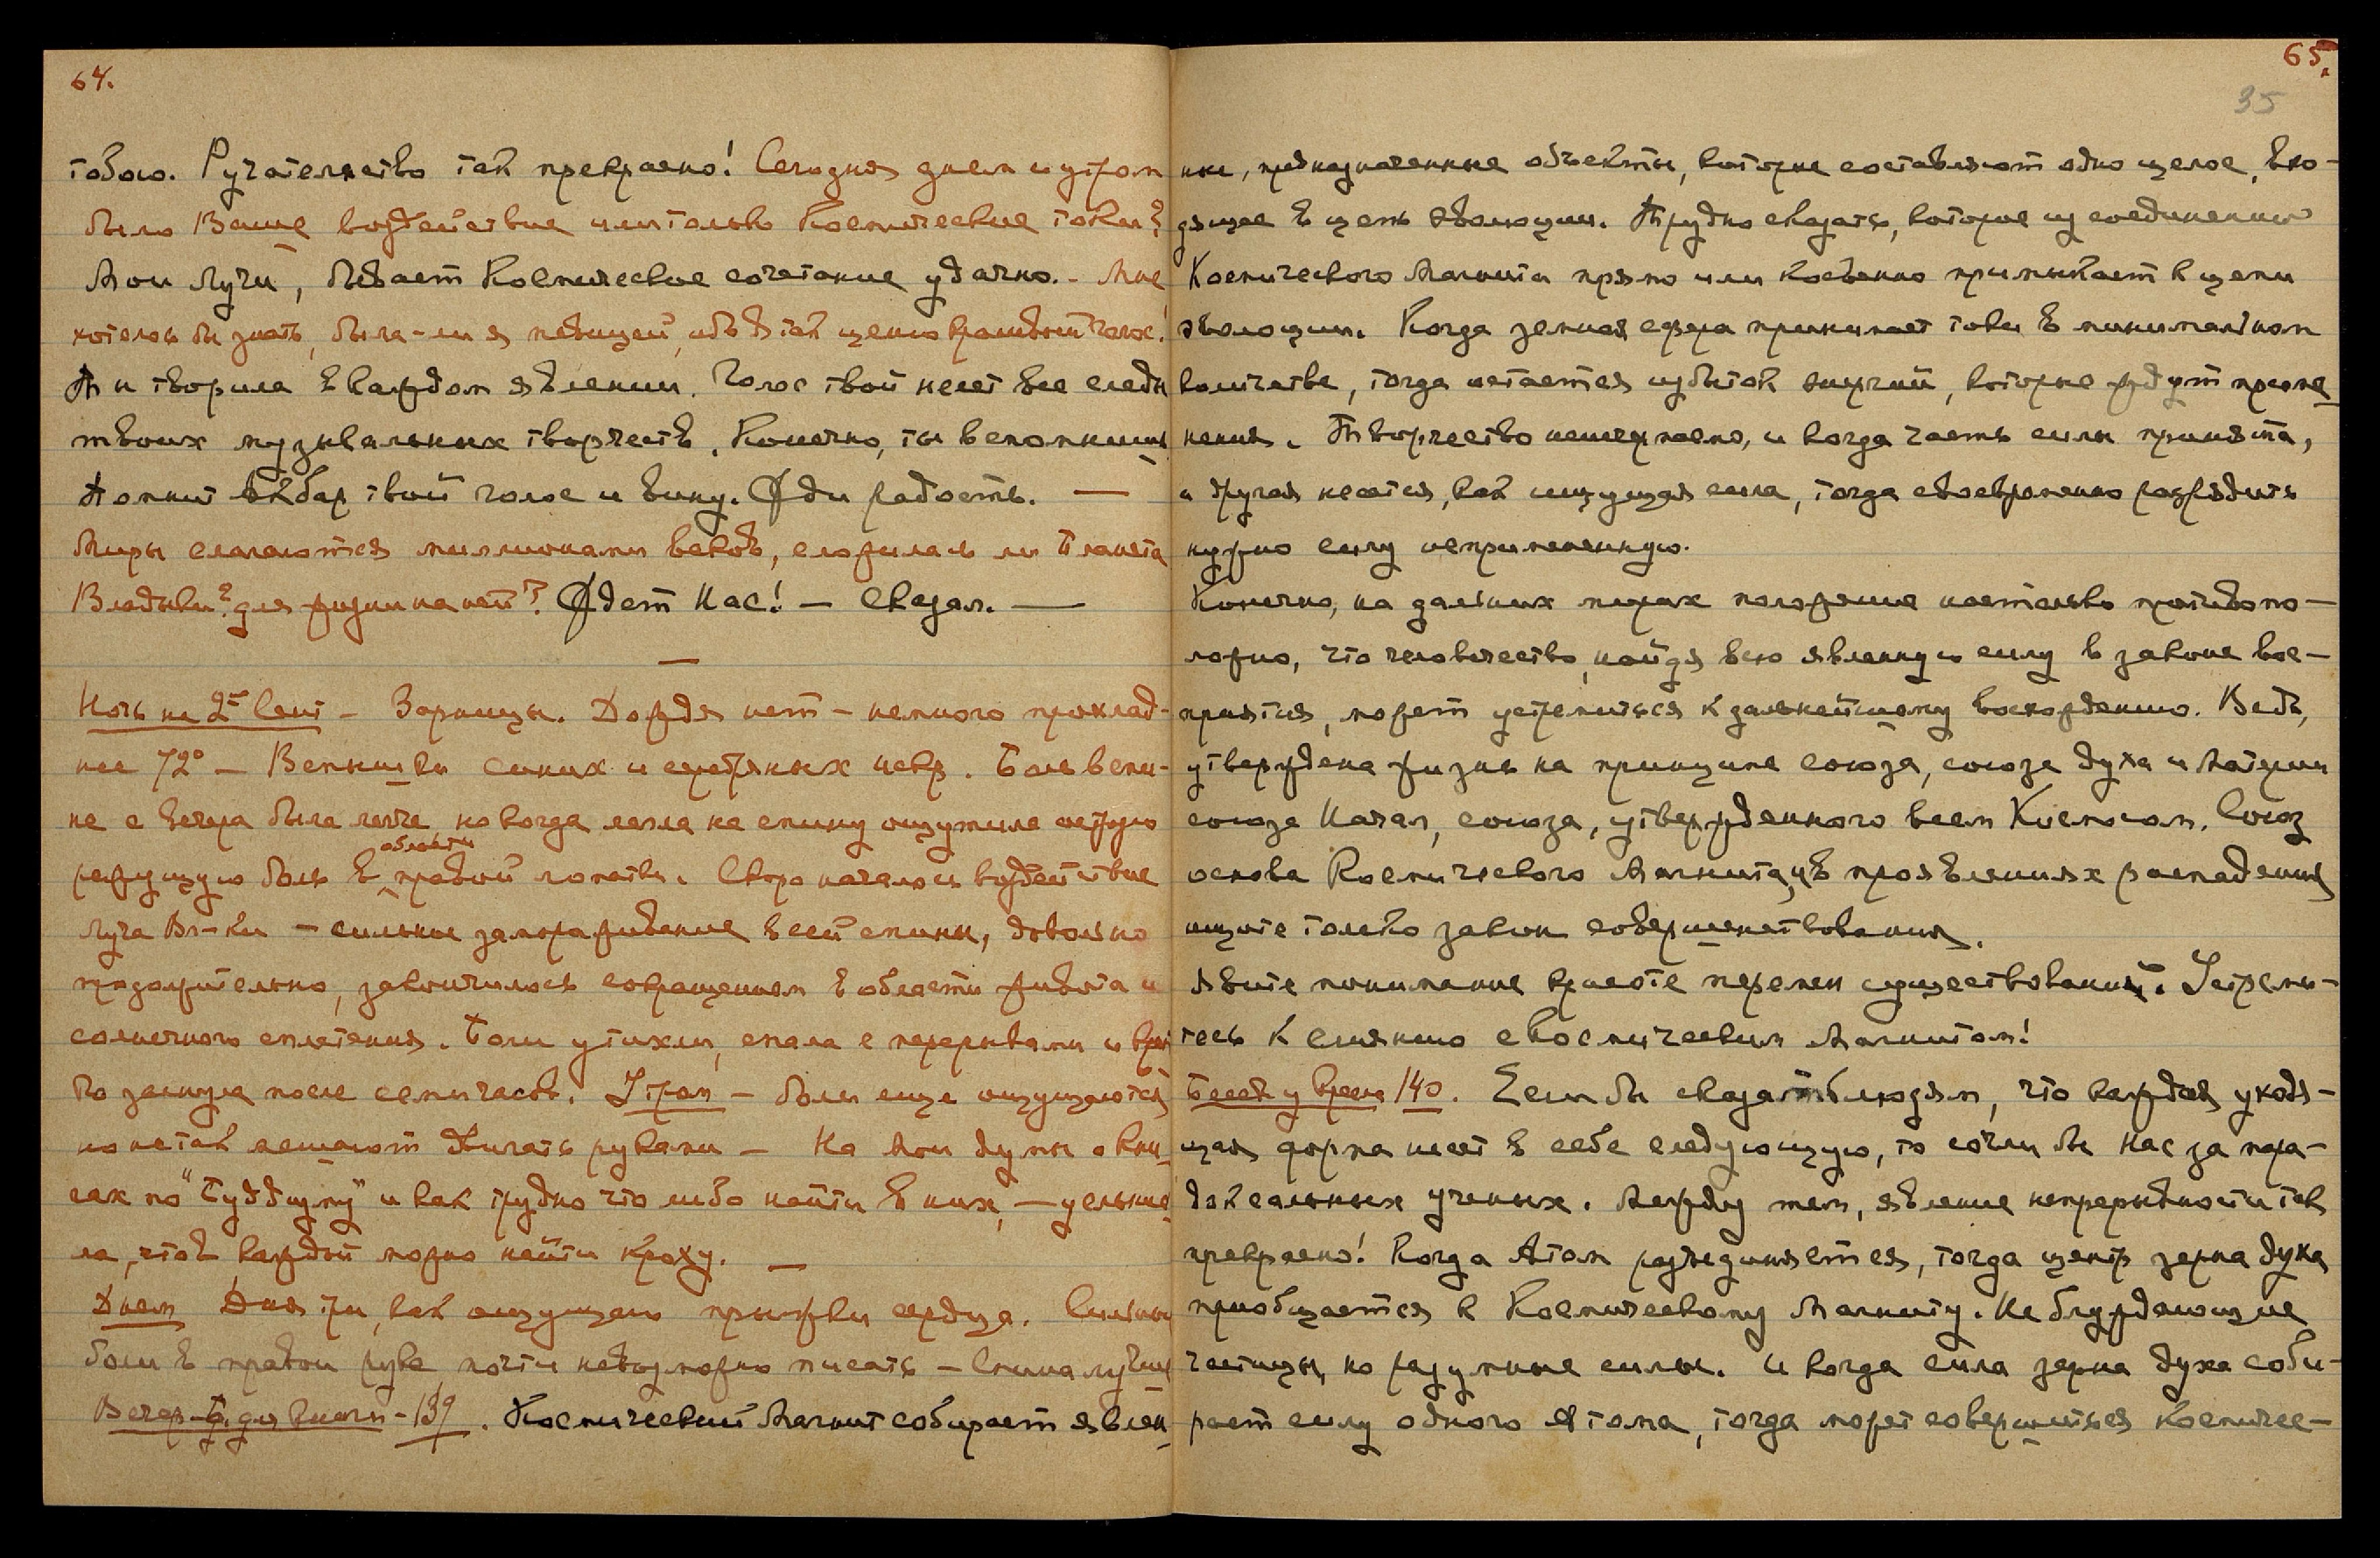 64.
тобою. Ручательство так прекрасно! Сегодня днем и утром
было Ваше воздействие или только Космические токи?
Мои Лучи, бывает Космическое сочетание удачно. - Мне
хотелось бы знать, была-ли я певицей, ибо я так ценю красивый голос!
Ты творила в каждом явлении. Голос твой несет все следы
твоих музыкальных творчеств. Конечно, ты вспомнишь
Помнит Акбар твой голос и вину. Жди радость. —
Миры слагаются миллионами веков, сложилась ли Планета
Владыки? для жизни на ней? Ждет Нас! — Сказал. —
—
Ночь на 2ое Сент - Зарницы. Дождя нет - немного прохлад-
нее 72° - Вспышки синих и серебряных искр. Боль в спи-
не с вечера была легче, но когда легла на спину ощутила острую
режущую боль в области правой лопатки. Скоро началось воздействие
Луча Вл-ки - сильное замораживание всей спины, довольно
продолжительно, закончилось сокращением в области живота и
солнечного сплетения. Боли утихли, спала с перерывами и креп
ко заснула после семи часов. Утром - боли еще ощущаются
но не так мешают двигать руками — На мои думы о кни-
гах по "Буддизму" и как трудно что либо найти в них, — услыша
ла, что в каждой можно найти кроху. —
Днем Дня три, как ощущаю прыжки сердца. Сильны
боли в правой руке, почти невозможно писать - Спина лучше
Вечер - Б. для книги - 139. Космический Магнит собирает явлен-
65.
35
ные, предназначенные объекты, которые составляют одно целое, вхо-
дящее в цепь эволюции. Трудно сказать, которое из соединений
Космического Магнита прямо или косвенно примыкает к цепи
эволюции. Когда земная сфера принимает токи в минимальном
количестве, тогда остается избыток энергий, которые ждут приме-
нения. Творчество неисчерпаемо, и когда часть силы принята,
и другая несется, как ищущая сила, тогда своевременно разрядить
нужно силу непримененную.
Конечно, на дальних мирах положение настолько противопо-
ложно, что человечество, найдя всю явленную силу в законе вос-
приятия, может устремиться к дальнейшему восхождению. Ведь,
утверждена жизнь на принципе союза, союза духа и материи
союза Начал, союза, утвержденного всем Космосом. Союз
основа Космического Магнита, и в проявлениях распадения
ищите только закон совершенствования.
Явите понимание красоте перемен существований. Устреми-
тесь к слиянию с Космическим Магнитом!
Беседы у Кресла 140. Если бы сказать людям, что каждая уходя-
щая форма несет в себе следующую, то сочли бы Нас за пара-
доксальных ученых. Между тем, явление непрерывности так
прекрасно! Когда Атом разъединяется, тогда центр зерна духа
приобщается к Космическому Магниту. Не блуждающие
частицы, но разумные силы. И когда сила зерна духа соби-
рает силу одного Атома, тогда может совершиться космичес-